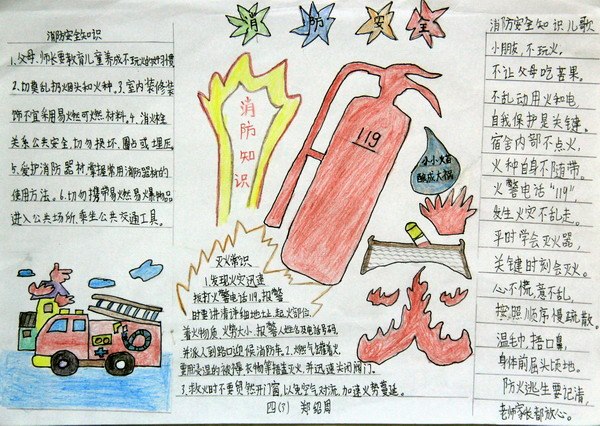 消 防 安 全
消防安全知识
1.父母、师长要教育儿童养成不玩火的好习惯
2.切莫乱扔烟头和火种。3.室内装修装
饰不宜采用易燃可燃材料。4.消火栓
关系公共安全,切勿损坏、圈占或埋压
5.爱护消防器材,掌握常用消防器材的
使用方法。6.切勿携带易燃易爆物品
进入公共场所、乘坐公共交通工具。
消防知识
119
小小火苗
酿成大祸
灭火常识
1.发现火灾迅速
拨打火警电话119,报警
时要讲清详细地址、起火部位、
着火物质、火势大小、报警人姓名及电话号码
并派人到路口迎候消防车。2.燃气罐着火,
要用浸湿的被褥、衣物等捂盖灭火,并迅速关闭阀门。
3.救火时不要贸然开门窗,以免空气对流,加速火势蔓延。
四(3) 郑
消防安全知识儿歌
小朋友,不玩火,
不让父母吃苦果。
不乱动用火和电,
自我保护是关键。
宿舍内部不点火,
火种自身不随带。
火警电话"119",
发生火灾不乱走。
平时学会灭火器,
关键时刻会灭火。
心不慌,意不乱,
按照顺序慢疏散。
温毛巾,捂口鼻,
身体前屈头顷地。
防火逃生要记清,
老师家长都放心。